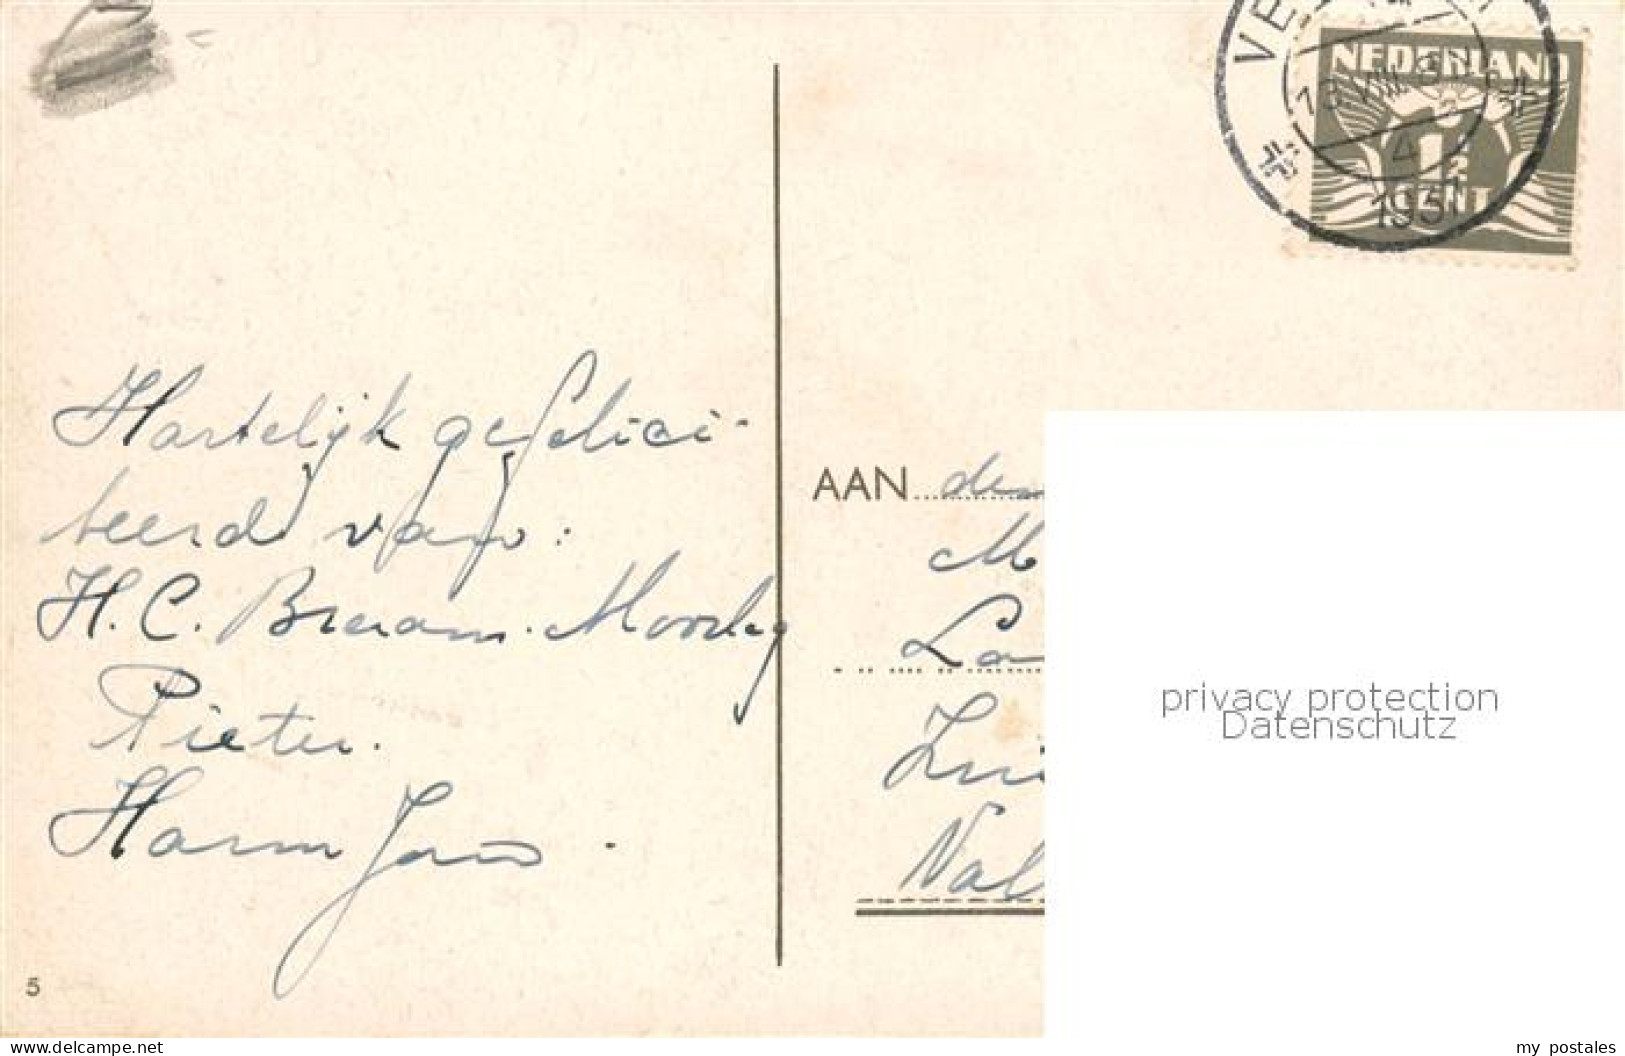 NEDERLAND
1½
CENT
1937
Hartelijk gefelici-
teerd van:
H. C.
Pieter.
Harm Jan.
AAN den
M
La
Zui
Val
5
privacy protection
Datenschutz
www.delcampe.net
my_postales